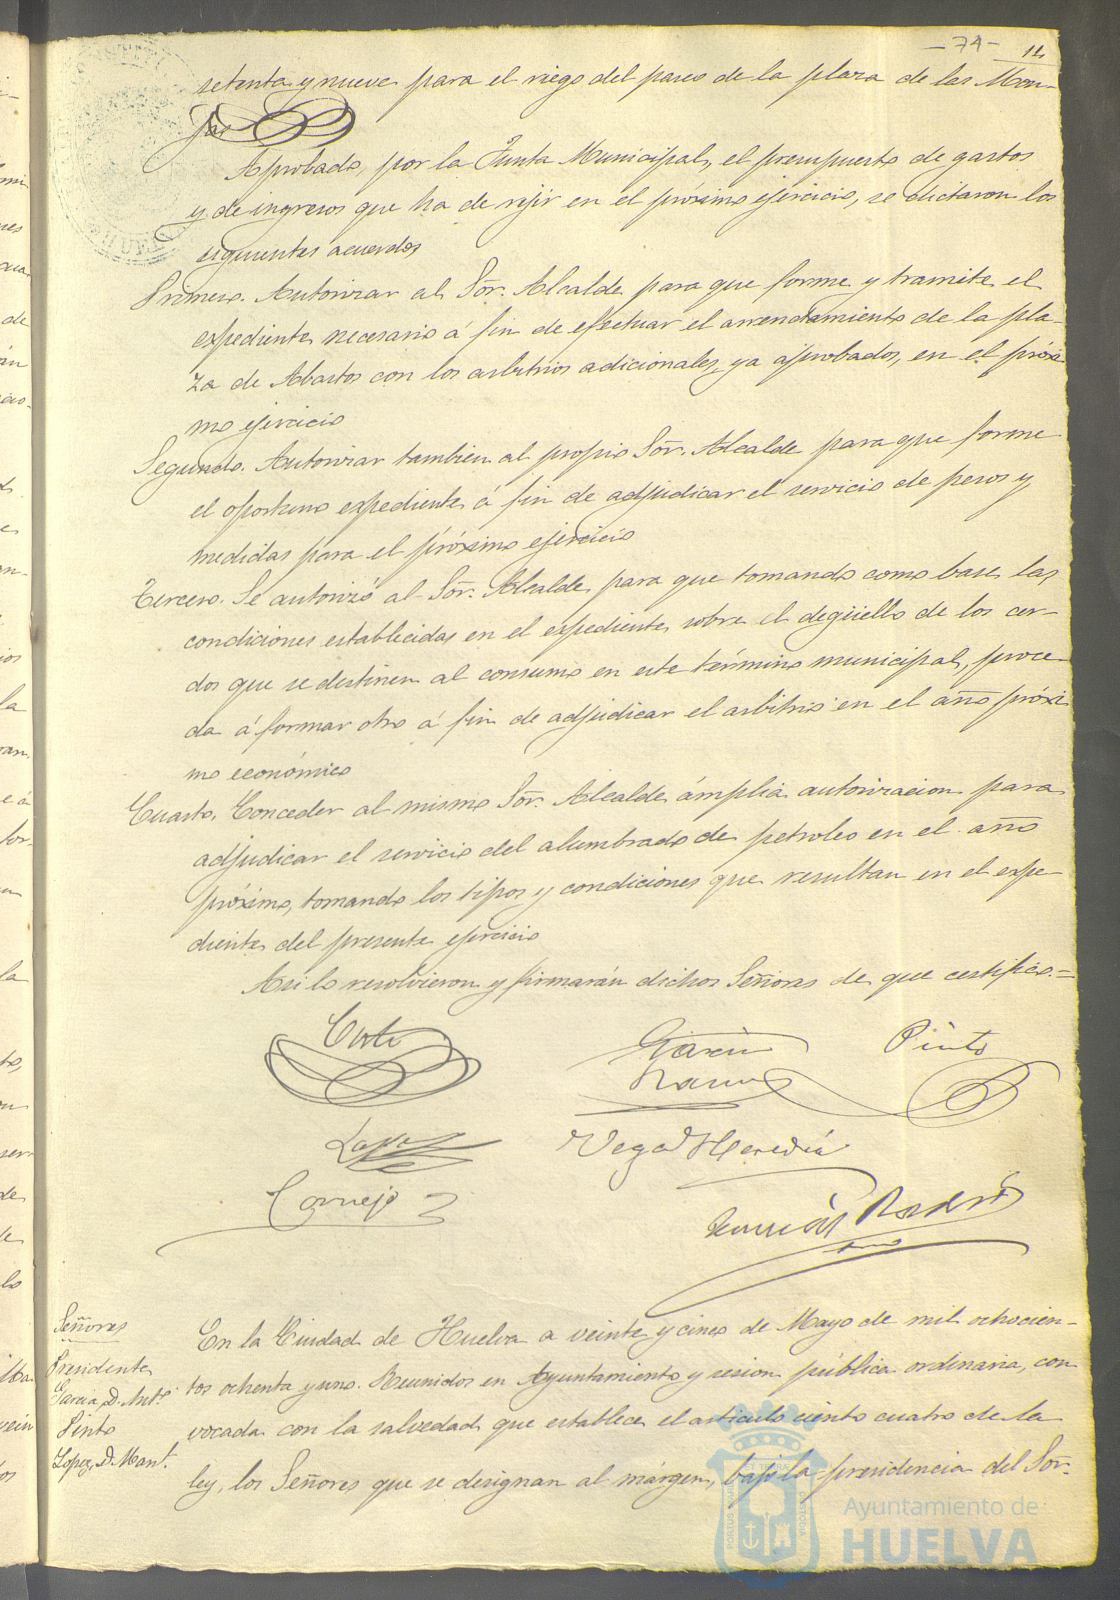 -74- 14
setenta y nueve para el riego del paseo de la plaza de las Mon-
jas
Aprobado, por la Junta Municipal, el presupuesto de gastos
y de ingresos que ha de rejir en el próximo ejercicio, se dictaron los
siguientes acuerdos
Primero. Autorizar al Sōr. Alcalde para que forme y tramite el
expediente necesario á fin de efectuar el arrendamiento de la pla-
za de Abastos con los arbitrios adicionales, ya aprobados, en el próxi-
mo ejercicio
Segundo. Autorizar tambien al propio Sōr. Alcalde para que forme
el oportuno expediente á fin de adjudicar el servicio de pesos y
medidas para el próximo ejercicio
Tercero. Se autorizó al Sōr. Alcalde para que tomando como base las
condiciones establecidas en el expediente sobre el degüello de los cer-
dos que se destinen al consumo en este término municipal, proce-
da á formar otro a fin de adjudicar el arbitrio en el año próxi
mo económico
Cuarto. Conceder al mismo Sōr. Alcalde ámplia autorizacion para
adjudicar el servicio del alumbrado de petroleo en el año
próximo, tomando los tipos y condiciones que resultan en el expe-
diente del presente ejercicio
Asi lo resolvieron y firmarán dichos Señores de que certifico.=
Garcia Pinto
Ramos
Lopez Vega Heredia
Cornejo
Señores
Presidente
Garcia, D. Antº
Pinto
Lopez, D. Manl.
En la Ciudad de Huelva a veinte y cinco de Mayo de mil ochocien-
tos ochenta y uno. Reunidos en Ayuntamiento y sesion pública ordinaria, con
vocada con la salvedad que establece el articulo ciento cuatro de la
ley, los Señores que se designan al márgen, bajo la presidencia del Sōr.
Ayuntamiento de
HUELVA